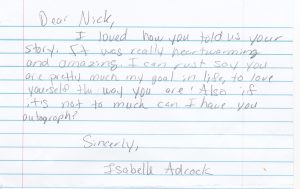 Dear Nick,
I loved how you told us your
story. It was really heartwarming
and amazing. I can just say you
are pretty much my goal in life, to love
yourself the way you are! Also if
it's not to much can I have you
autograph?
Sincerly,
Isabelle Adcock